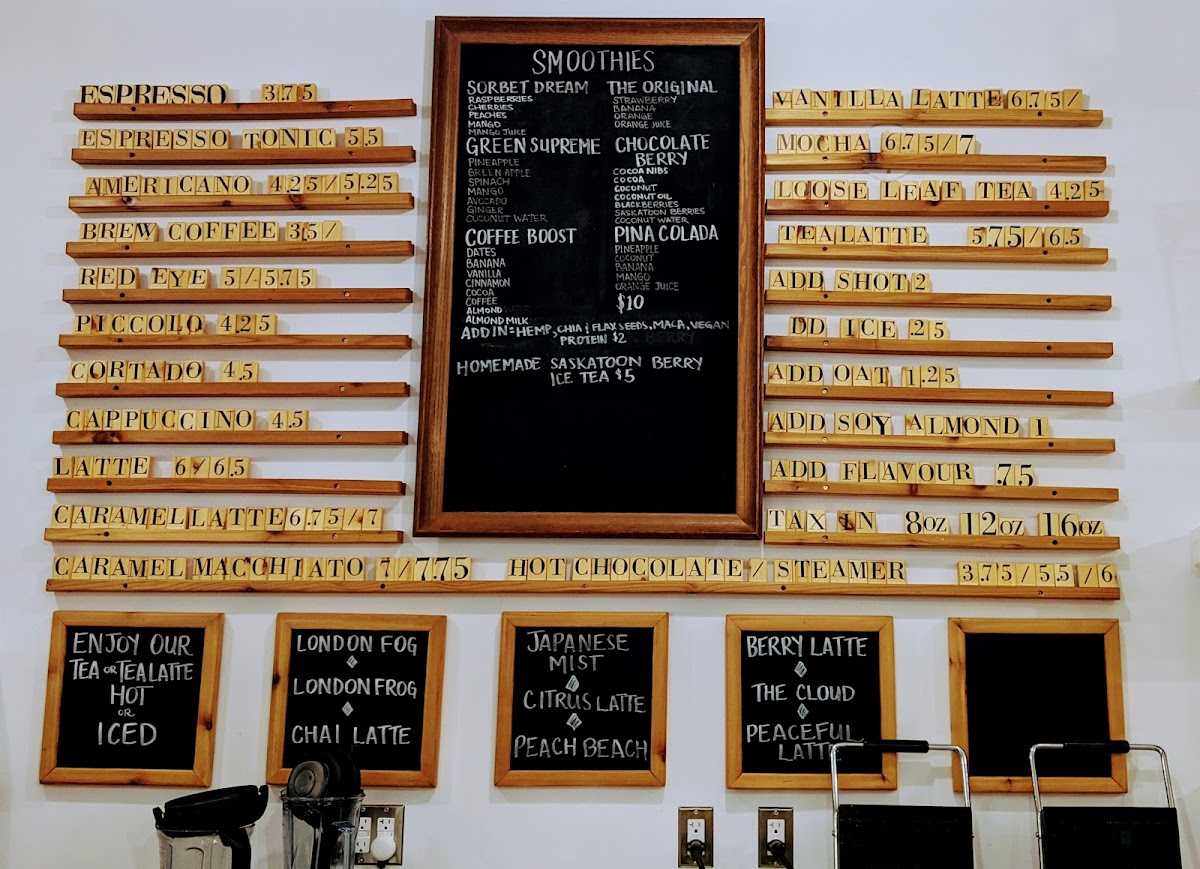 ESPRESSO 3.75
ESPRESSO TONIC 5.5
AMERICANO 4.25/5.25
BREW COFFEE 3.5/
RED EYE 5/5.75
PICCOLO 4.25
CORTADO 4.5
CAPPUCCINO 4.5
LATTE 6/6.5
CARAMEL LATTE 6.75/7
CARAMEL MACCHIATO 7/7.75
SMOOTHIES
SORBET DREAM
RASPBERRIES
CHERRIES
PEACHES
MANGO
MANGO JUICE
GREEN SUPREME
PINEAPPLE
GREEN APPLE
SPINACH
MANGO
AVOCADO
GINGER
COCONUT WATER
COFFEE BOOST
DATES
BANANA
VANILLA
CINNAMON
COCOA
COFFEE
ALMOND
ALMOND MILK
THE ORIGINAL
STRAWBERRY
BANANA
ORANGE
ORANGE JUICE
CHOCOLATE
BERRY
COCOA NIBS
COCOA
COCONUT
COCONUT OIL
BLACKBERRIES
SASKATOON BERRIES
COCONUT WATER
PINA COLADA
PINEAPPLE
COCONUT
BANANA
MANGO
ORANGE JUICE
$10
ADD IN = HEMP, CHIA & FLAX SEEDS, MACA, VEGAN
PROTEIN $2
HOMEMADE SASKATOON BERRY
ICE TEA $5
VANILLA LATTE 6.75/
MOCHA 6.75/7
LOOSE LEAF TEA 4.25
TEA LATTE 5.75/6.5
ADD SHOT 2
DD ICE .25
ADD OAT 1.25
ADD SOY ALMOND 1
ADD FLAVOUR .75
TAX IN 8OZ 12OZ 16OZ
HOT CHOCOLATE / STEAMER 3.75/5.5/6
ENJOY OUR
TEA OR TEA LATTE
HOT
OR
ICED
LONDON FOG
LONDON FROG
CHAI LATTE
JAPANESE
MIST
CITRUS LATTE
PEACH BEACH
BERRY LATTE
THE CLOUD
PEACEFUL
LATTE